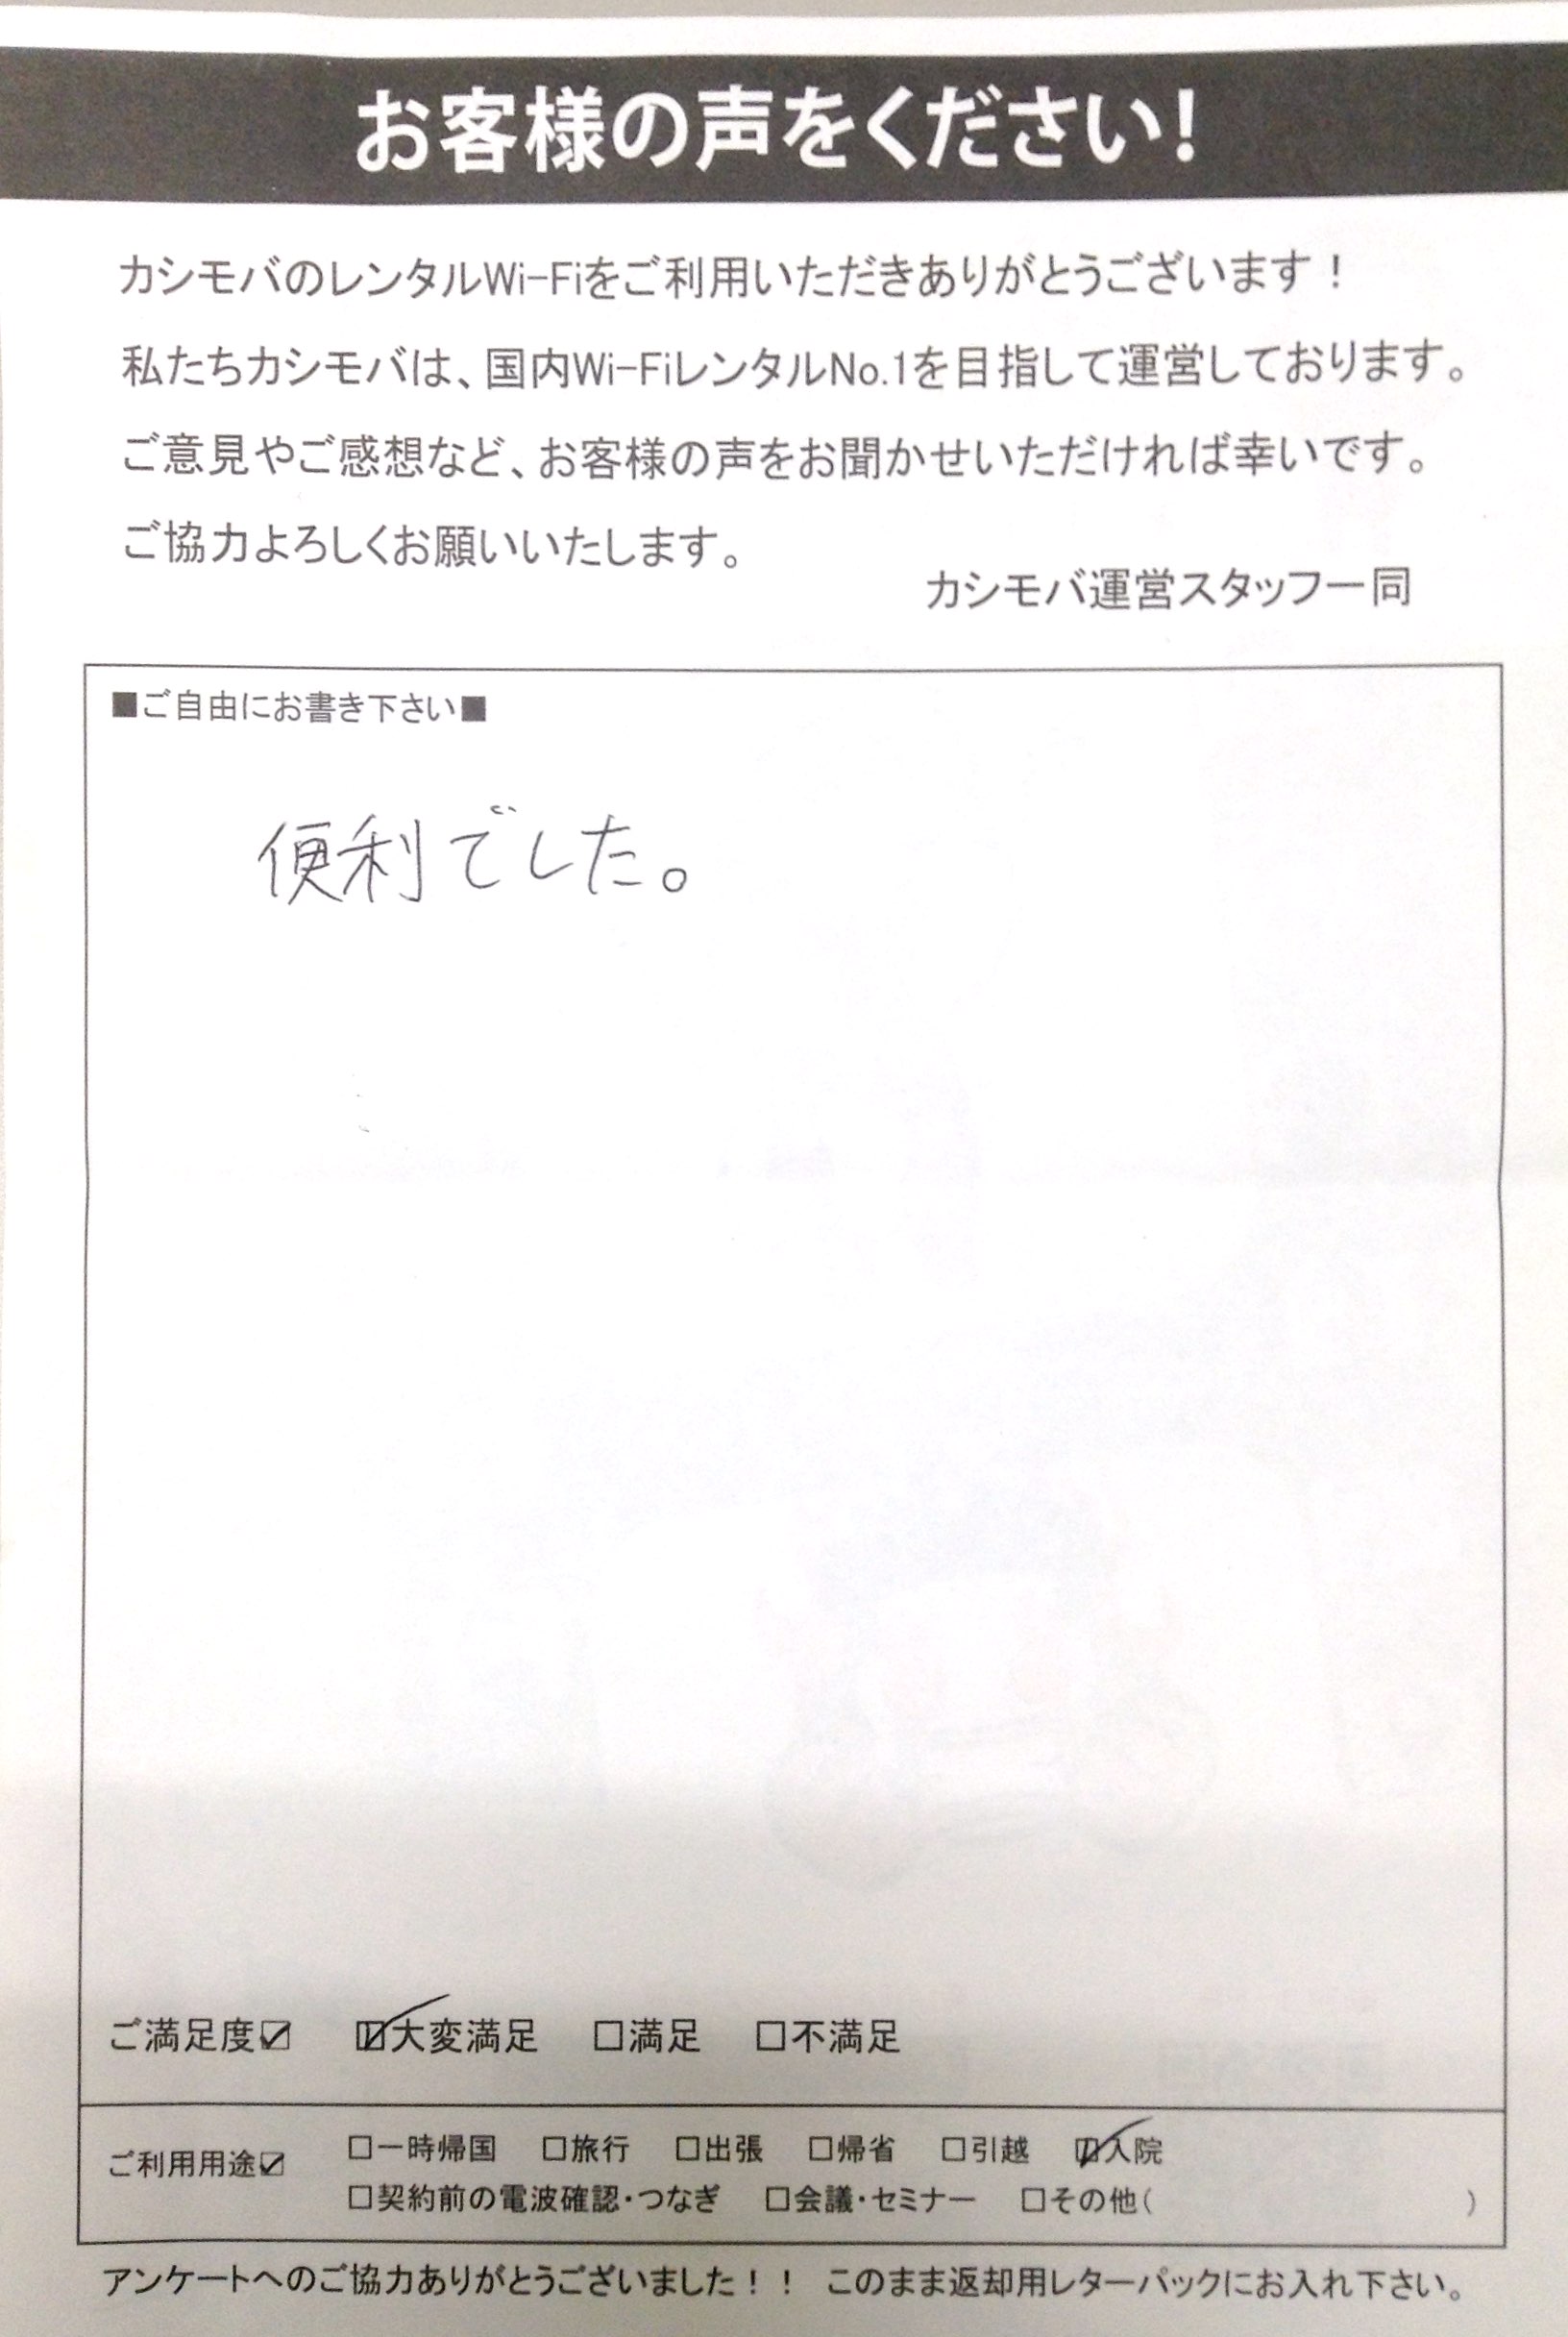 お客様の声をください!
カシモバのレンタルWi-Fiをご利用いただきありがとうございます！
私たちカシモバは、国内Wi-FiレンタルNo.1を目指して運営しております。
ご意見やご感想など、お客様の声をお聞かせいただければ幸いです。
ご協力よろしくお願いいたします。
カシモバ運営スタッフ一同
■ご自由にお書き下さい■
便利でした。
ご満足度☑ ☑大変満足 □満足 □不満足
ご利用用途☑ □一時帰国 □旅行 □出張 □帰省 □引越 ☑入院
□契約前の電波確認・つなぎ □会議・セミナー □その他( )
アンケートへのご協力ありがとうございました！！ このまま返却用レターパックにお入れ下さい。